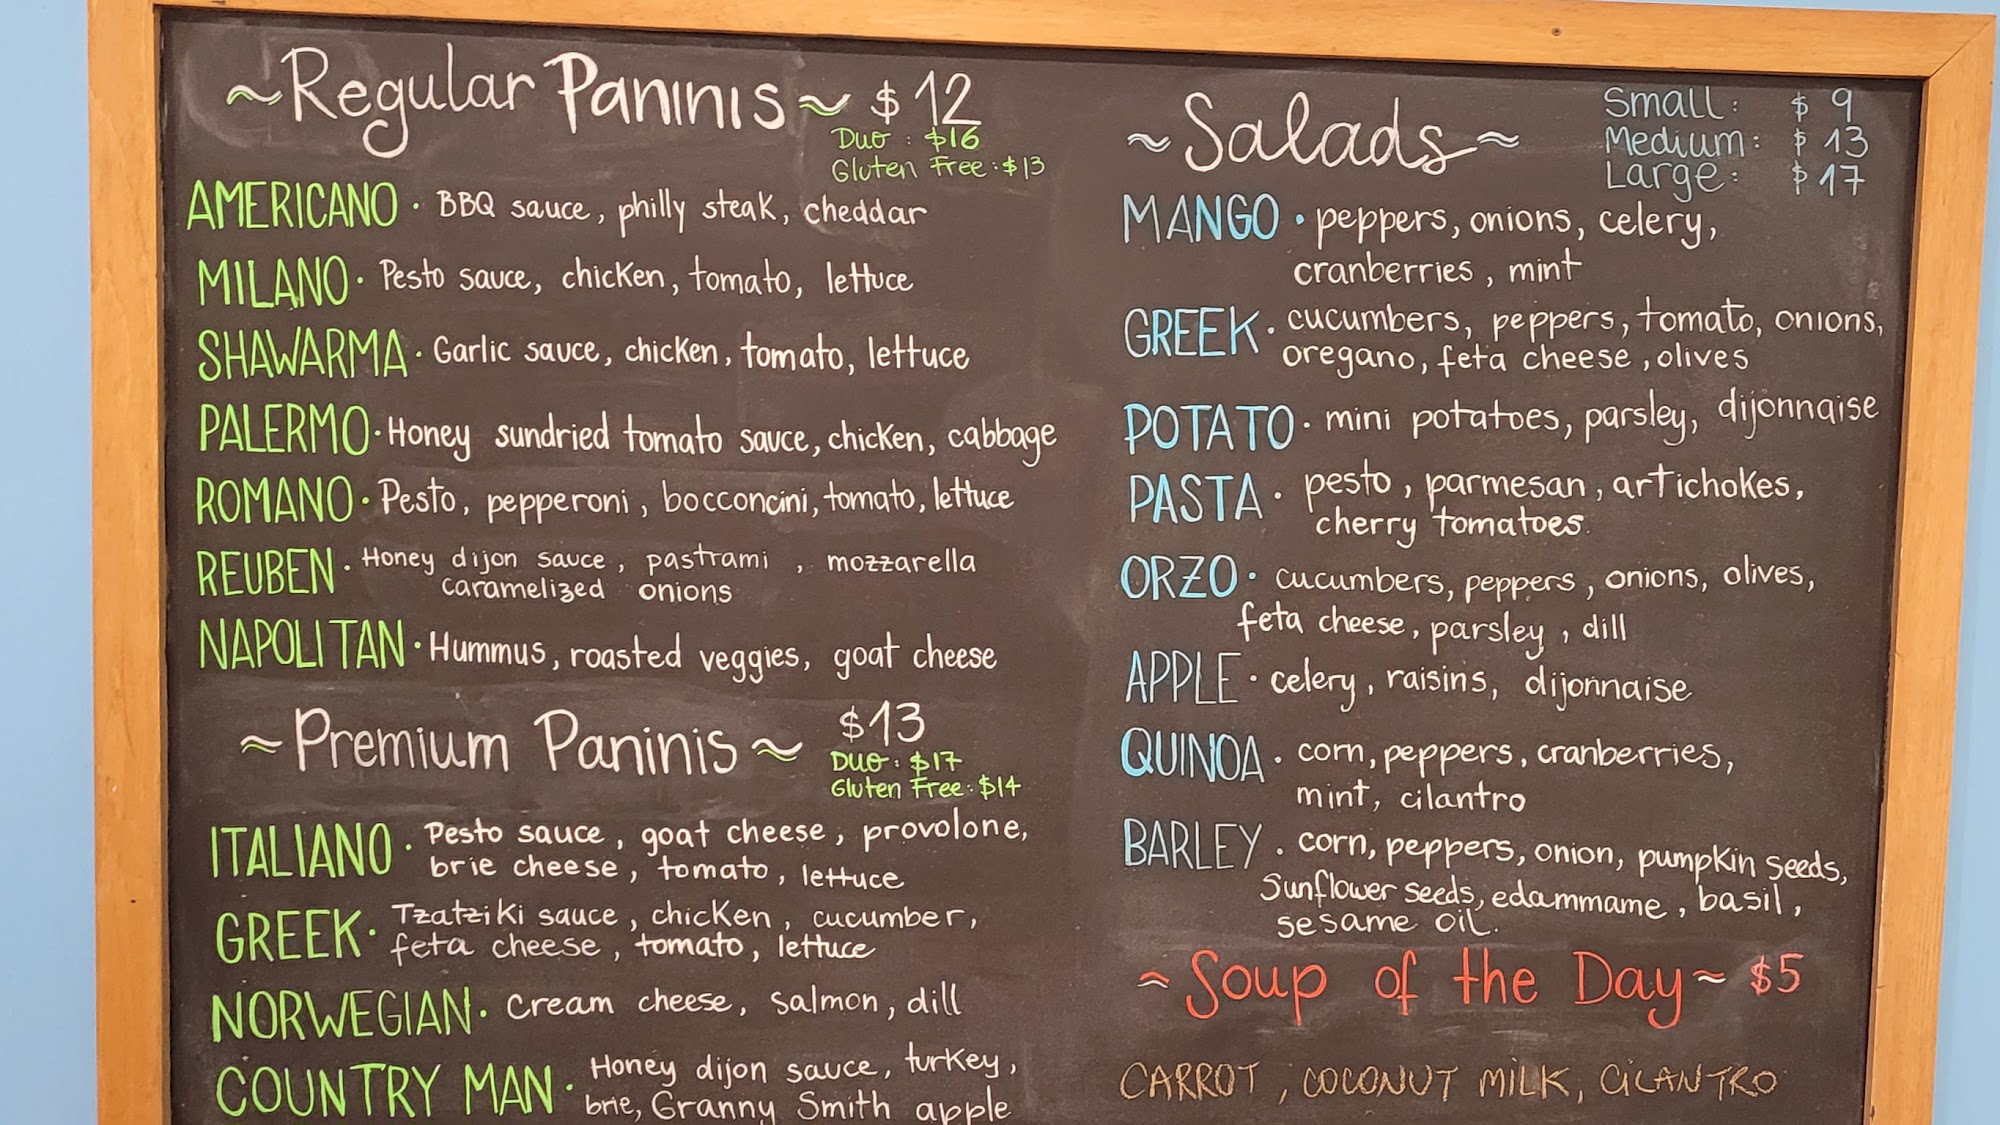 ~Regular Paninis~ $12
Duo : $16
Gluten Free : $13
AMERICANO · BBQ sauce, philly steak, cheddar
MILANO · Pesto sauce, chicken, tomato, lettuce
SHAWARMA · Garlic sauce, chicken, tomato, lettuce
PALERMO · Honey sundried tomato sauce, chicken, cabbage
ROMANO · Pesto, pepperoni, bocconcini, tomato, lettuce
REUBEN · Honey dijon sauce, pastrami, mozzarella
caramelized onions
NAPOLITAN · Hummus, roasted veggies, goat cheese
~Premium Paninis~ $13
Duo : $17
Gluten Free : $14
ITALIANO · Pesto sauce, goat cheese, provolone,
brie cheese, tomato, lettuce
GREEK · Tzatziki sauce, chicken, cucumber,
feta cheese, tomato, lettuce
NORWEGIAN · Cream cheese, salmon, dill
COUNTRY MAN · Honey dijon sauce, turkey,
brie, Granny Smith apple
~Salads~
Small : $ 9
Medium : $ 13
Large : $ 17
MANGO · peppers, onions, celery,
cranberries, mint
GREEK · cucumbers, peppers, tomato, onions,
oregano, feta cheese, olives
POTATO · mini potatoes, parsley, dijonnaise
PASTA · pesto, parmesan, artichokes,
cherry tomatoes.
ORZO · cucumbers, peppers, onions, olives,
feta cheese, parsley, dill
APPLE · celery, raisins, dijonnaise
QUINOA · corn, peppers, cranberries,
mint, cilantro
BARLEY · corn, peppers, onion, pumpkin seeds,
Sunflower seeds, edammame, basil,
sesame oil.
~Soup of the Day~ $5
CARROT, COCONUT MILK, CILANTRO